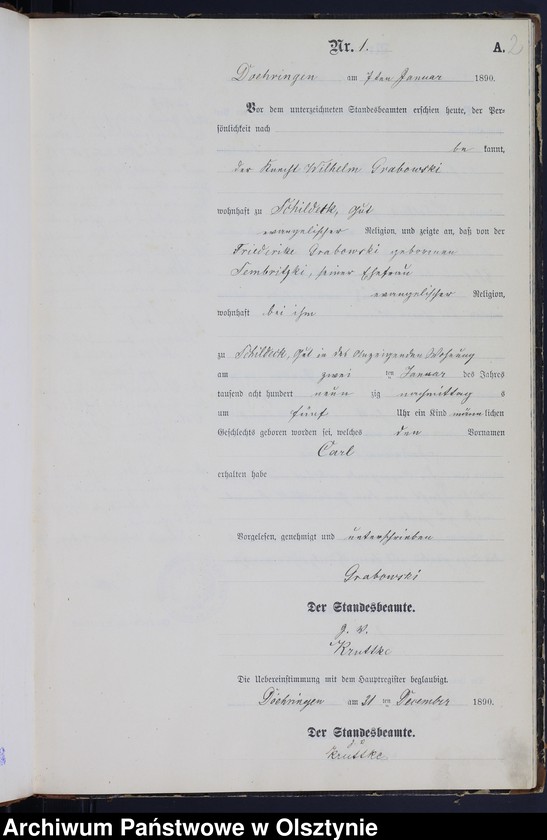 Nr. 1.
A. 2
Doehringen am 7ten Januar 1890.
Vor dem unterzeichneten Standesbeamten erschien heute, der Per-
sönlichkeit nach
be kannt,
der Knecht Wilhelm Grabowski
wohnhaft zu Schildeck, Gut
evangelischer Religion, und zeigte an, daß von der
Friederike Grabowski geborenen
Tembritzki, seiner Ehefrau
evangelischer Religion,
wohnhaft bei ihm
zu Schildeck, Gut in des Anzeigenden Wohnung
am zwei ten Januar des Jahres
tausend acht hundert neun zig nachmittag s
um fünf Uhr ein Kind männlichen
Geschlechts geboren worden sei, welches den Vornamen
Carl
erhalten habe
Vorgelesen, genehmigt und unterschrieben
Grabowski
Der Standesbeamte.
Kruttke
Die Uebereinstimmung mit dem Hauptregister beglaubigt.
Döehringen am 31 ten December 1890.
Der Standesbeamte.
Kruttke
Archiwum Państwowe w Olsztynie